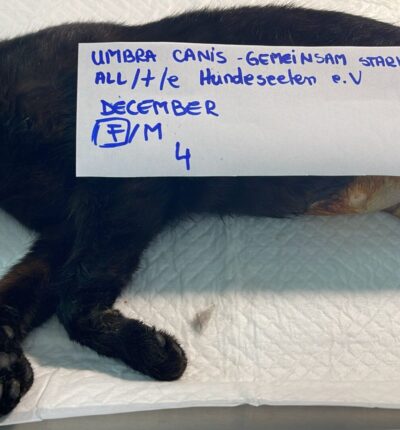 UMBRA CANIS - GEMEINSAM STARK
ALL/t/e Hundeseelen e.V
DECEMBER
/F/M
4